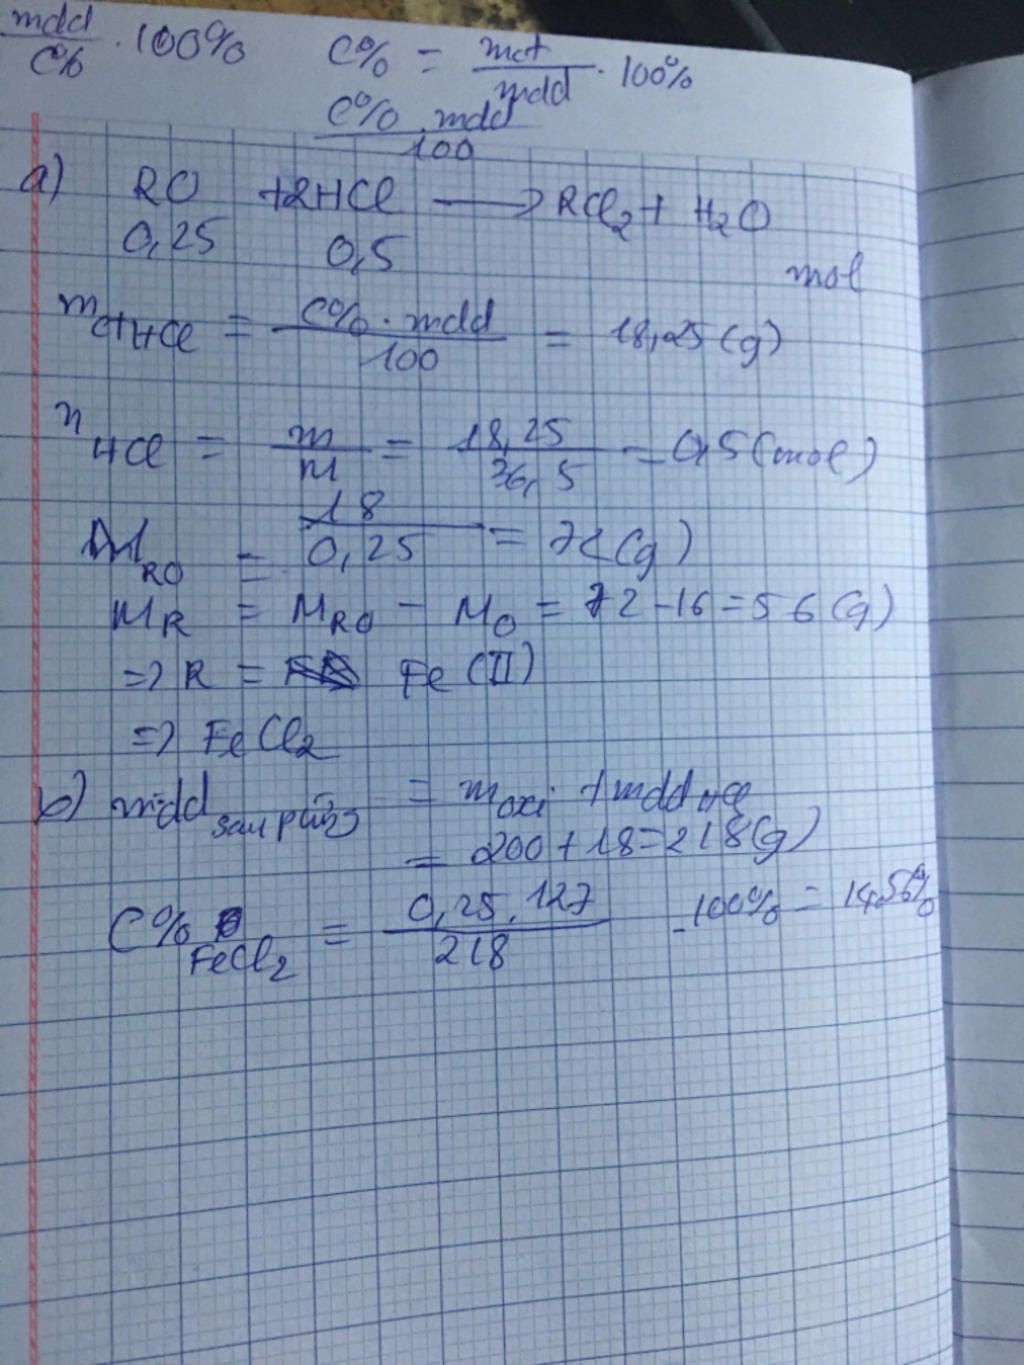 mdd/C% . 100% C% = mct/mdd . 100%
C% . mdd/100
a) RO + 2HCl → RCl₂ + H₂O
0,25 0,5 mol
m ctHCl = C% . mdd/100 = 18,25 (g)
n HCl = m/M = 18,25/36,5 = 0,5 (mol)
M RO = 18/0,25 = 72 (g)
M R = M RO - M O = 72 - 16 = 56 (g)
=> R = Fe (II)
=> FeCl₂
b) mdd sau pứ = m oxi + mdd HCl
= 200 + 18 = 218 (g)
C% FeCl₂ = 0,25 . 127/218 . 100% = 14,56%